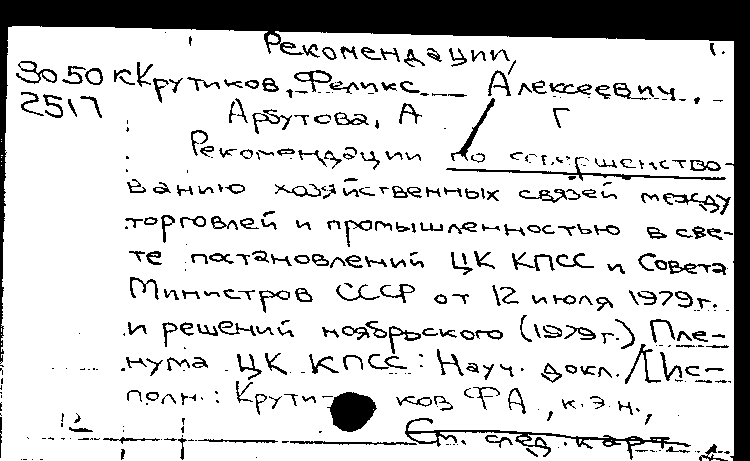 Рекомендации, Г.
3050к Крутиков, Феликс Алексеевич,
2517 Арбутова, А Г
Рекомендации по совершенство-
ванию хозяйственных связей между
торговлей и промышленностью в све-
те постановлений ЦК КПСС и Совета
Министров СССР от 12 июля 1979г.
и решений ноябрьского (1979г.) Пле-
нума ЦК КПСС: Науч. докл. / [Ис-
полн.: Крутиков ФА, к.э.н.,
12 См. след. карт.